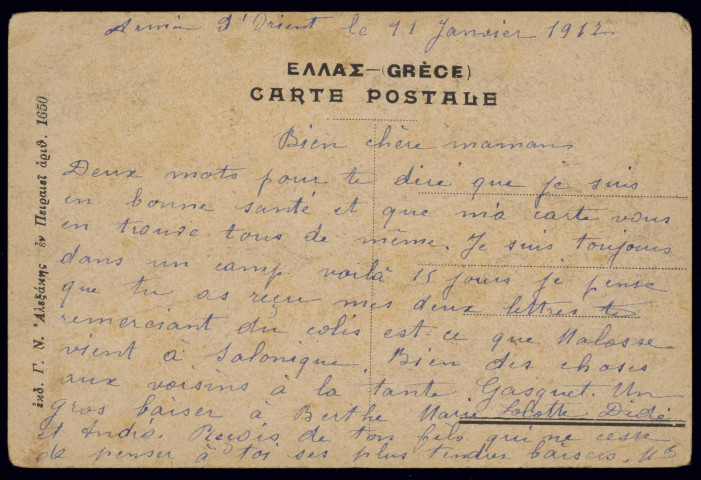 Armée D'Orient le 11 Janvier 1917
ΕΛΛΑΣ-(GRÈCE)
CARTE POSTALE
Bien chère maman
Deux mots pour te dire que je suis
en bonne santé et que ma carte vous
en trouve tous de même. Je suis toujours
dans un camp voilà 15 jours je pense
que tu as reçu mes deux lettres te
remerciant du colis est-ce que Malosse
vient à Salonique. Bien des choses
aux voisins à la tante Gasquet. Un
gros baiser à Berthe Marie Lolotte Didé
et André. Reçois de ton fils qui ne cesse
de penser à toi ses plus tendres baisers.
ἐκδ. Γ. Ν. Ἀλεξάκης ἐν Πειραιεῖ ἀριθ. 1650